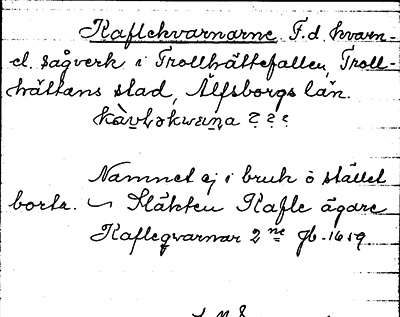 Kaflekvarnarne. F.d. kvarn-
el. sågverk i Trollhättefallen, Troll-
hättans stad, Älfsborgs län.
? ? ?
Namnet ej i bruk o stället
borta. ~ Släkten Kafle ägare
Kafleqvarnar 2 ne Jb. 1659